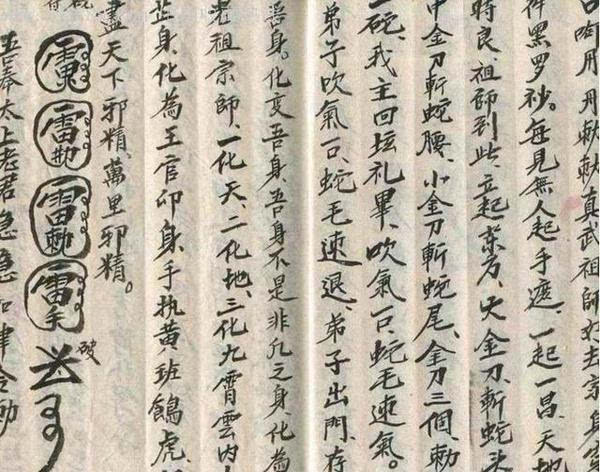 勅勅真武祖師好去
黑罗紗。每見無人起手遮、一起一昌、天地
時良、祖師到此、立起東方、大金刀、斬蛇头
中金刀斬蛇腰、小金刀斬蛇尾、金刀三個、勅
一碗、我主回坛礼畢、吹氣一口、蛇毛速氣。
弟子吹氣一口、蛇毛速退、弟子出門、存
吾身。化变吾身、吾身不是非凡之身、化為
老祖宗師、一化天、二化地、三化九霄雲内
正身、化為王官卯身、手执黄班餓虎、
盡天下邪精、萬里邪精。
雷 雷 雷勅 雷 破
吾奉太上老君急急如律令勅